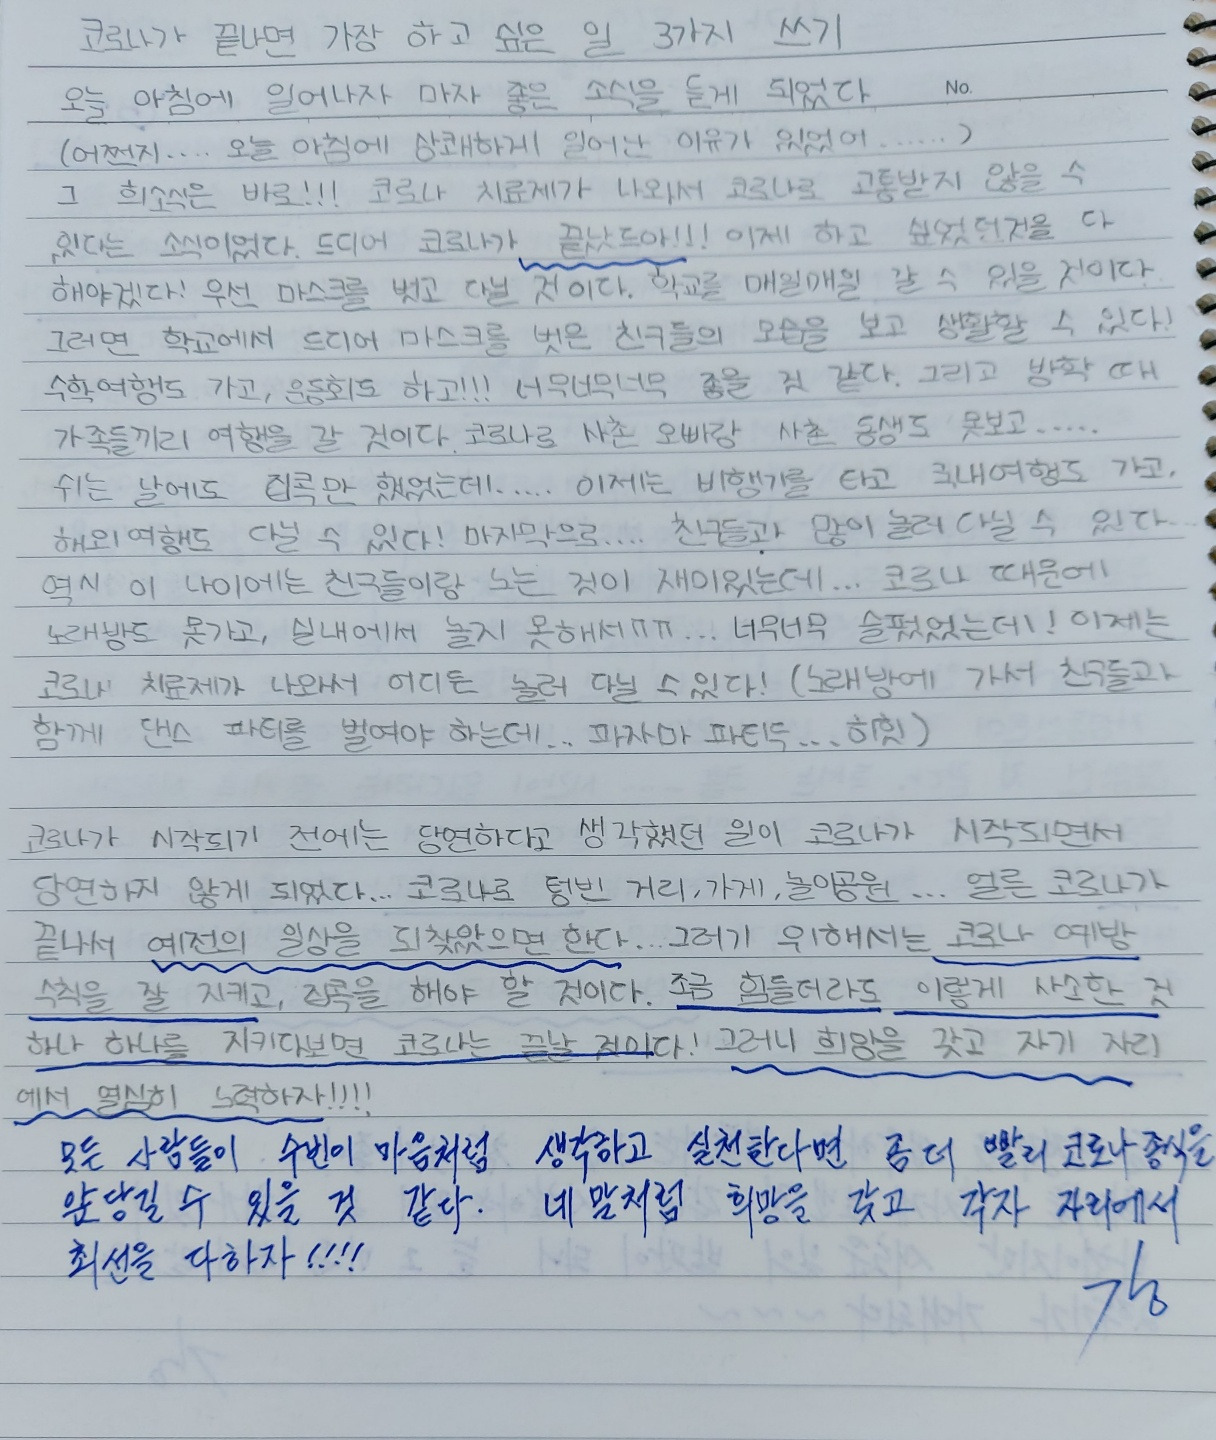 코로나가 끝나면 가장 하고 싶은 일 3가지 쓰기
No.
오늘 아침에 일어나자 마자 좋은 소식을 듣게 되었다
(어쩐지.... 오늘 아침에 상쾌하게 일어난 이유가 있었어.......)
그 희소식은 바로!!! 코로나 치료제가 나와서 코로나로 고통받지 않을 수
있다는 소식이었다. 드디어 코로나가 끝났드아!!! 이제 하고 싶었던것을 다
해야겠다! 우선 마스크를 벗고 다닐 것이다. 학교를 매일매일 갈 수 있을 것이다.
그러면 학교에서 드디어 마스크를 벗은 친구들의 모습을 보고 생활할 수 있다!
수학여행도 가고, 운동회도 하고!!! 너무너무너무 좋을 것 같다. 그리고 방학 때
가족들끼리 여행을 갈 것이다. 코로나로 사촌 오빠랑 사촌 동생도 못보고.....
쉬는 날에도 집콕만 했었는데..... 이제는 비행기를 타고 국내여행도 가고,
해외여행도 다닐 수 있다! 마지막으로.... 친구들과 많이 놀러 다닐 수 있다...
역시 이 나이에는 친구들이랑 노는 것이 재미있는데... 코로나 때문에
노래방도 못가고, 실내에서 놀지 못해서ㅠㅠ... 너무너무 슬펐었는데! 이제는
코로나 치료제가 나와서 어디든 놀러 다닐 수있다! (노래방에 가서 친구들과
함께 댄스 파티를 벌여야 하는데... 파자마 파티두... 히힛)
코로나가 시작되기 전에는 당연하다고 생각했던 일이 코로나가 시작되면서
당연하지 않게 되었다... 코로나로 텅빈 거리, 가게, 놀이공원... 얼른 코로나가
끝나서 예전의 일상을 되찾았으면 한다...그러기 위해서는 코로나 예방
수칙을 잘 지키고, 집콕을 해야 할 것이다. 조금 힘들더라도 이렇게 사소한 것
하나 하나를 지키다보면 코로나는 끝날 것이다! 그러니 희망을 갖고 자기 자리
에서 열심히 노력하자!!!!
모든 사람들이 수빈이 마음처럼 생각하고 실천한다면 좀 더 빨리 코로나 종식을
앞당길 수 있을 것 같다. 네 말처럼 희망을 갖고 각자 자리에서
최선을 다하자!!!!
강